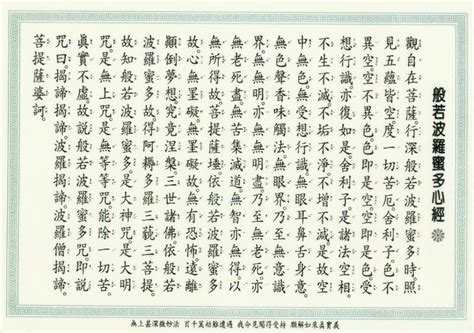 般若波羅蜜多心經
觀自在菩薩。行深般若波羅蜜多時。照
見五蘊皆空。度一切苦厄。舍利子。色不
異空。空不異色。色即是空。空即是色。受
想行識。亦復如是。舍利子。是諸法空相。
不生不滅。不垢不淨。不增不減。是故空
中無色。無受想行識。無眼耳鼻舌身意。
無色聲香味觸法。無眼界。乃至無意識
界。無無明。亦無無明盡。乃至無老死。亦
無老死盡。無苦集滅道。無智亦無得。以
無所得故。菩提薩埵。依般若波羅蜜多
故。心無罣礙。無罣礙故。無有恐怖。遠離
顛倒夢想。究竟涅槃。三世諸佛。依般若
波羅蜜多故。得阿耨多羅三藐三菩提。
故知般若波羅蜜多。是大神咒。是大明
咒。是無上咒。是無等等咒。能除一切苦。
真實不虛。故說般若波羅蜜多咒。即說
咒曰。揭諦揭諦。波羅揭諦。波羅僧揭諦。
菩提薩婆訶。
無上甚深微妙法 百千萬劫難遭遇 我今見聞得受持 願解如來真實義